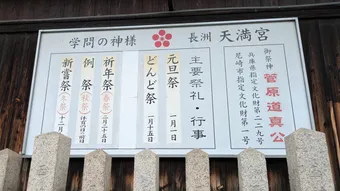 学問の神様 長洲 天満宮
御祭神 菅原道真公
兵庫県指定文化財二二九号
尼崎市指定文化財第一号
主要祭礼・行事
元旦祭 一月一日
どんど祭 一月十五日
祈年祭（春祭）二月二十五日
例祭（秋祭）
新嘗祭（冬祭）